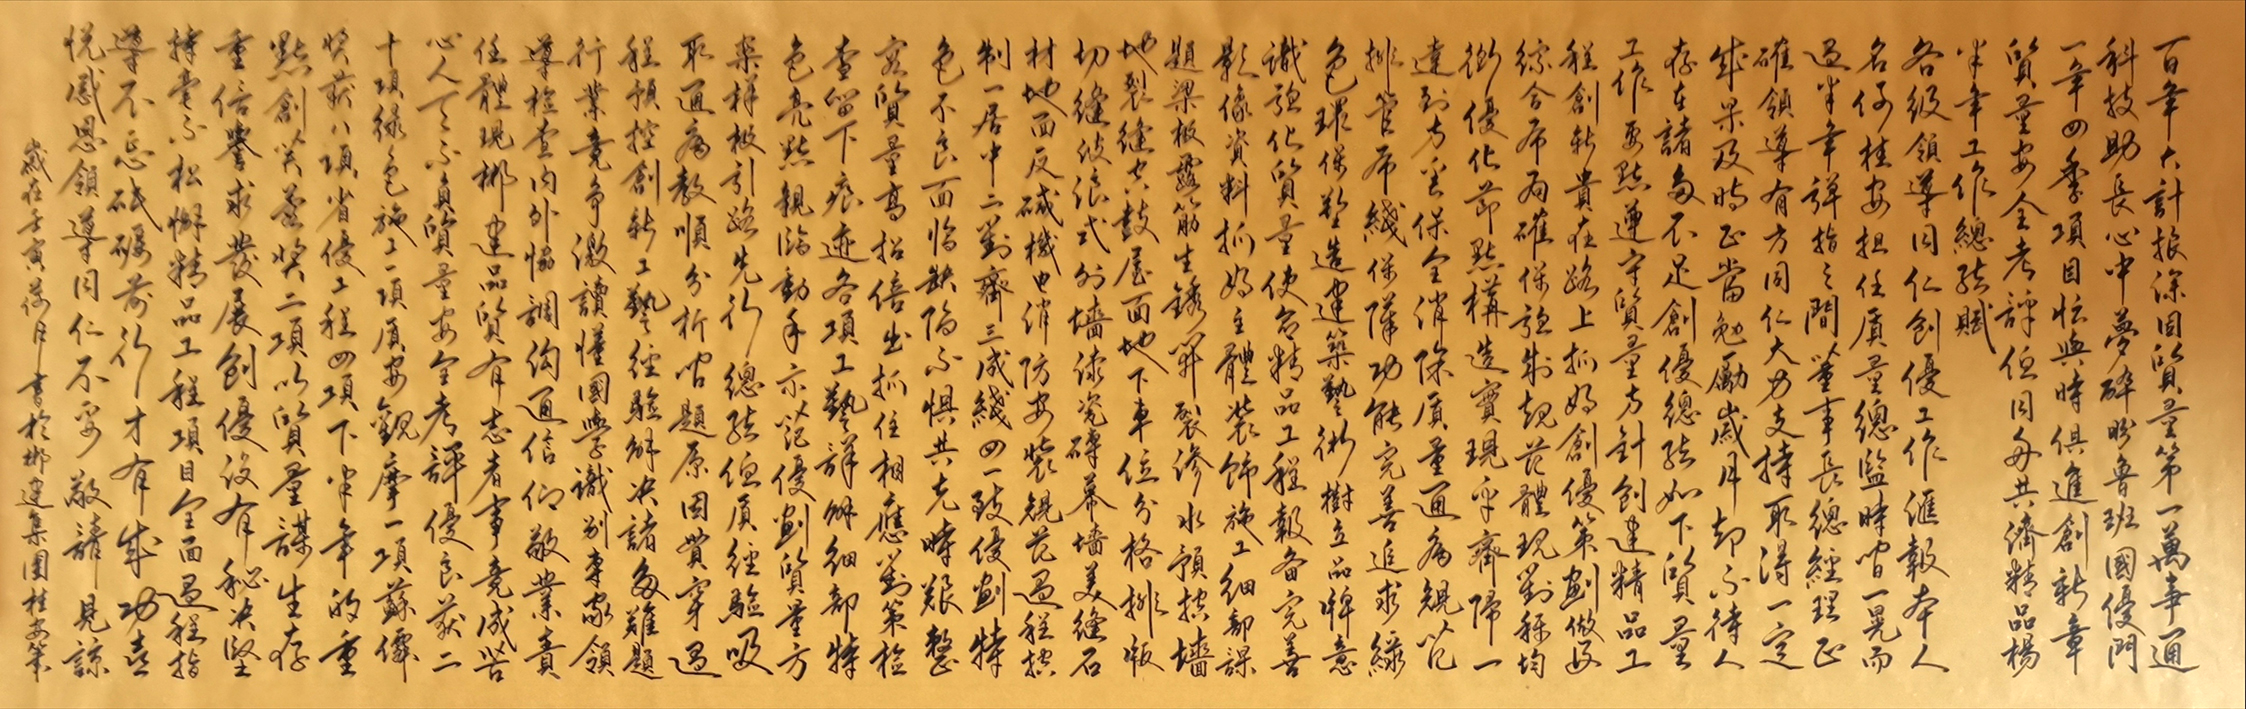 百年大計根深固質量第一萬事通
科技助長心中夢碎盼魯班國優門
一年四季項目忙與時俱進創新章
質量安全考評但同舟共濟精品楊
半年工作總結賦
各級領導同仁創優工作滙報本人
名何桂安担任質量總監時間一晃而
過半年彈指之間董事長總經理正
確領導有方同仁大力支持取得一定
成果及時正當勉勵歲月却不待人
存在諸多不足創優總結如下質量
工作要點遵守質量方針創建精品工
程創新貴在路上抓好創優策劃做好
綜合布局確保强制規范體現對稱均
衡優化節點構造實現平齊歸一
達到方案保全消除質量通病規范
排管布綫保障功能完善追求綠
色環保塑造建築藝術樹立品牌意
識强化質量使命精品工程報备完善
影像資料抓好主體裝飾施工細部課
題梁板露筋生銹開裂滲水預控墻
地裂縫空鼓屋面地下車位分格排版
切縫波浪式外墻漆瓷磚幕墻美縫石
材地面反碱機电消防安裝規范過程控
制一居中二對齊三成綫四一致優劃特
色不良面临缺陷不惧共克時艱整
容質量高招倍出抓住相應對策檢
查留下痕迹各項工藝詳解細部特
色亮點親臨動手示范優劃質量方
案樣板引路先行總結但質經驗吸
取通病教順分析问題原因貫穿過
程預控創新工藝經驗解决諸多難題
行業竞争激讀懂國學識别專家領
導检查内外協調溝通信仰敬業責
任體現郴建品質有志者事竟成苦
心人天不負質量安全考評優良获二
十項綠色施工一項質安觀摩一項蘇儒
奖获八項省優工程四項下半年的重
點創芙蓉奖二項以質量謀生存
重信譽求發展創優没有秘决堅
持毫不松懈精品工程項目全面過程指
導不忘砥礪前行才有成功喜
悦感恩領導同仁不妥敬請見諒
歲在壬寅荷月 書於郴建集團桂安策